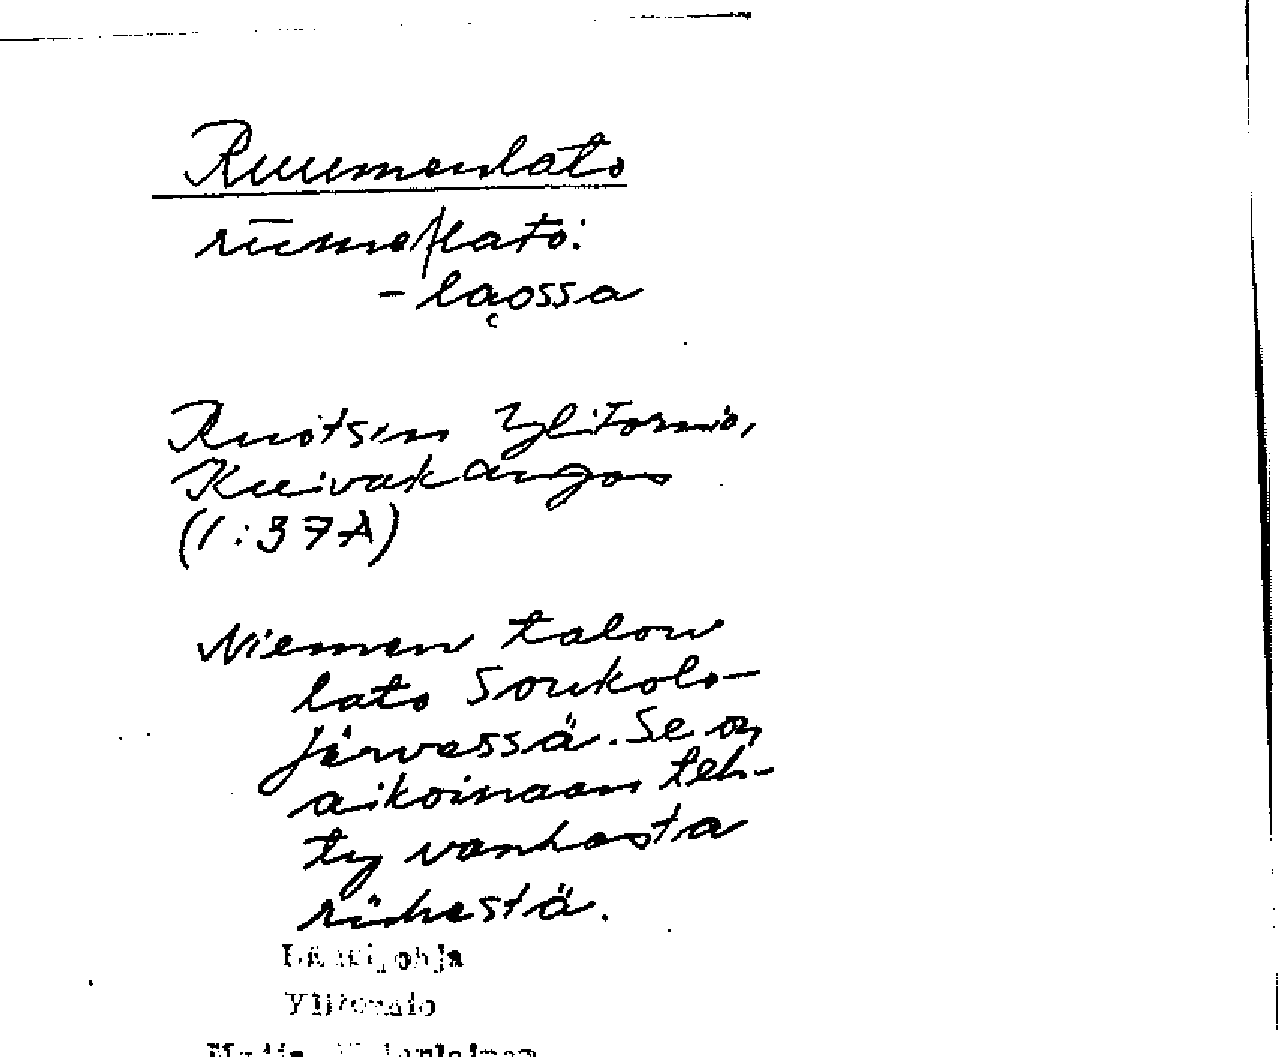 Ruumenlato
rūme/lato:
- lao̜ssa
Ruotsin Ylitornio,
Kuivakangas
(1:37A)
Niemen talon
lato Soukolo-
järvessä. Se on
aikoinaan teh-
ty vanhasta
riihestä.
Länsipohja
Ylitornio